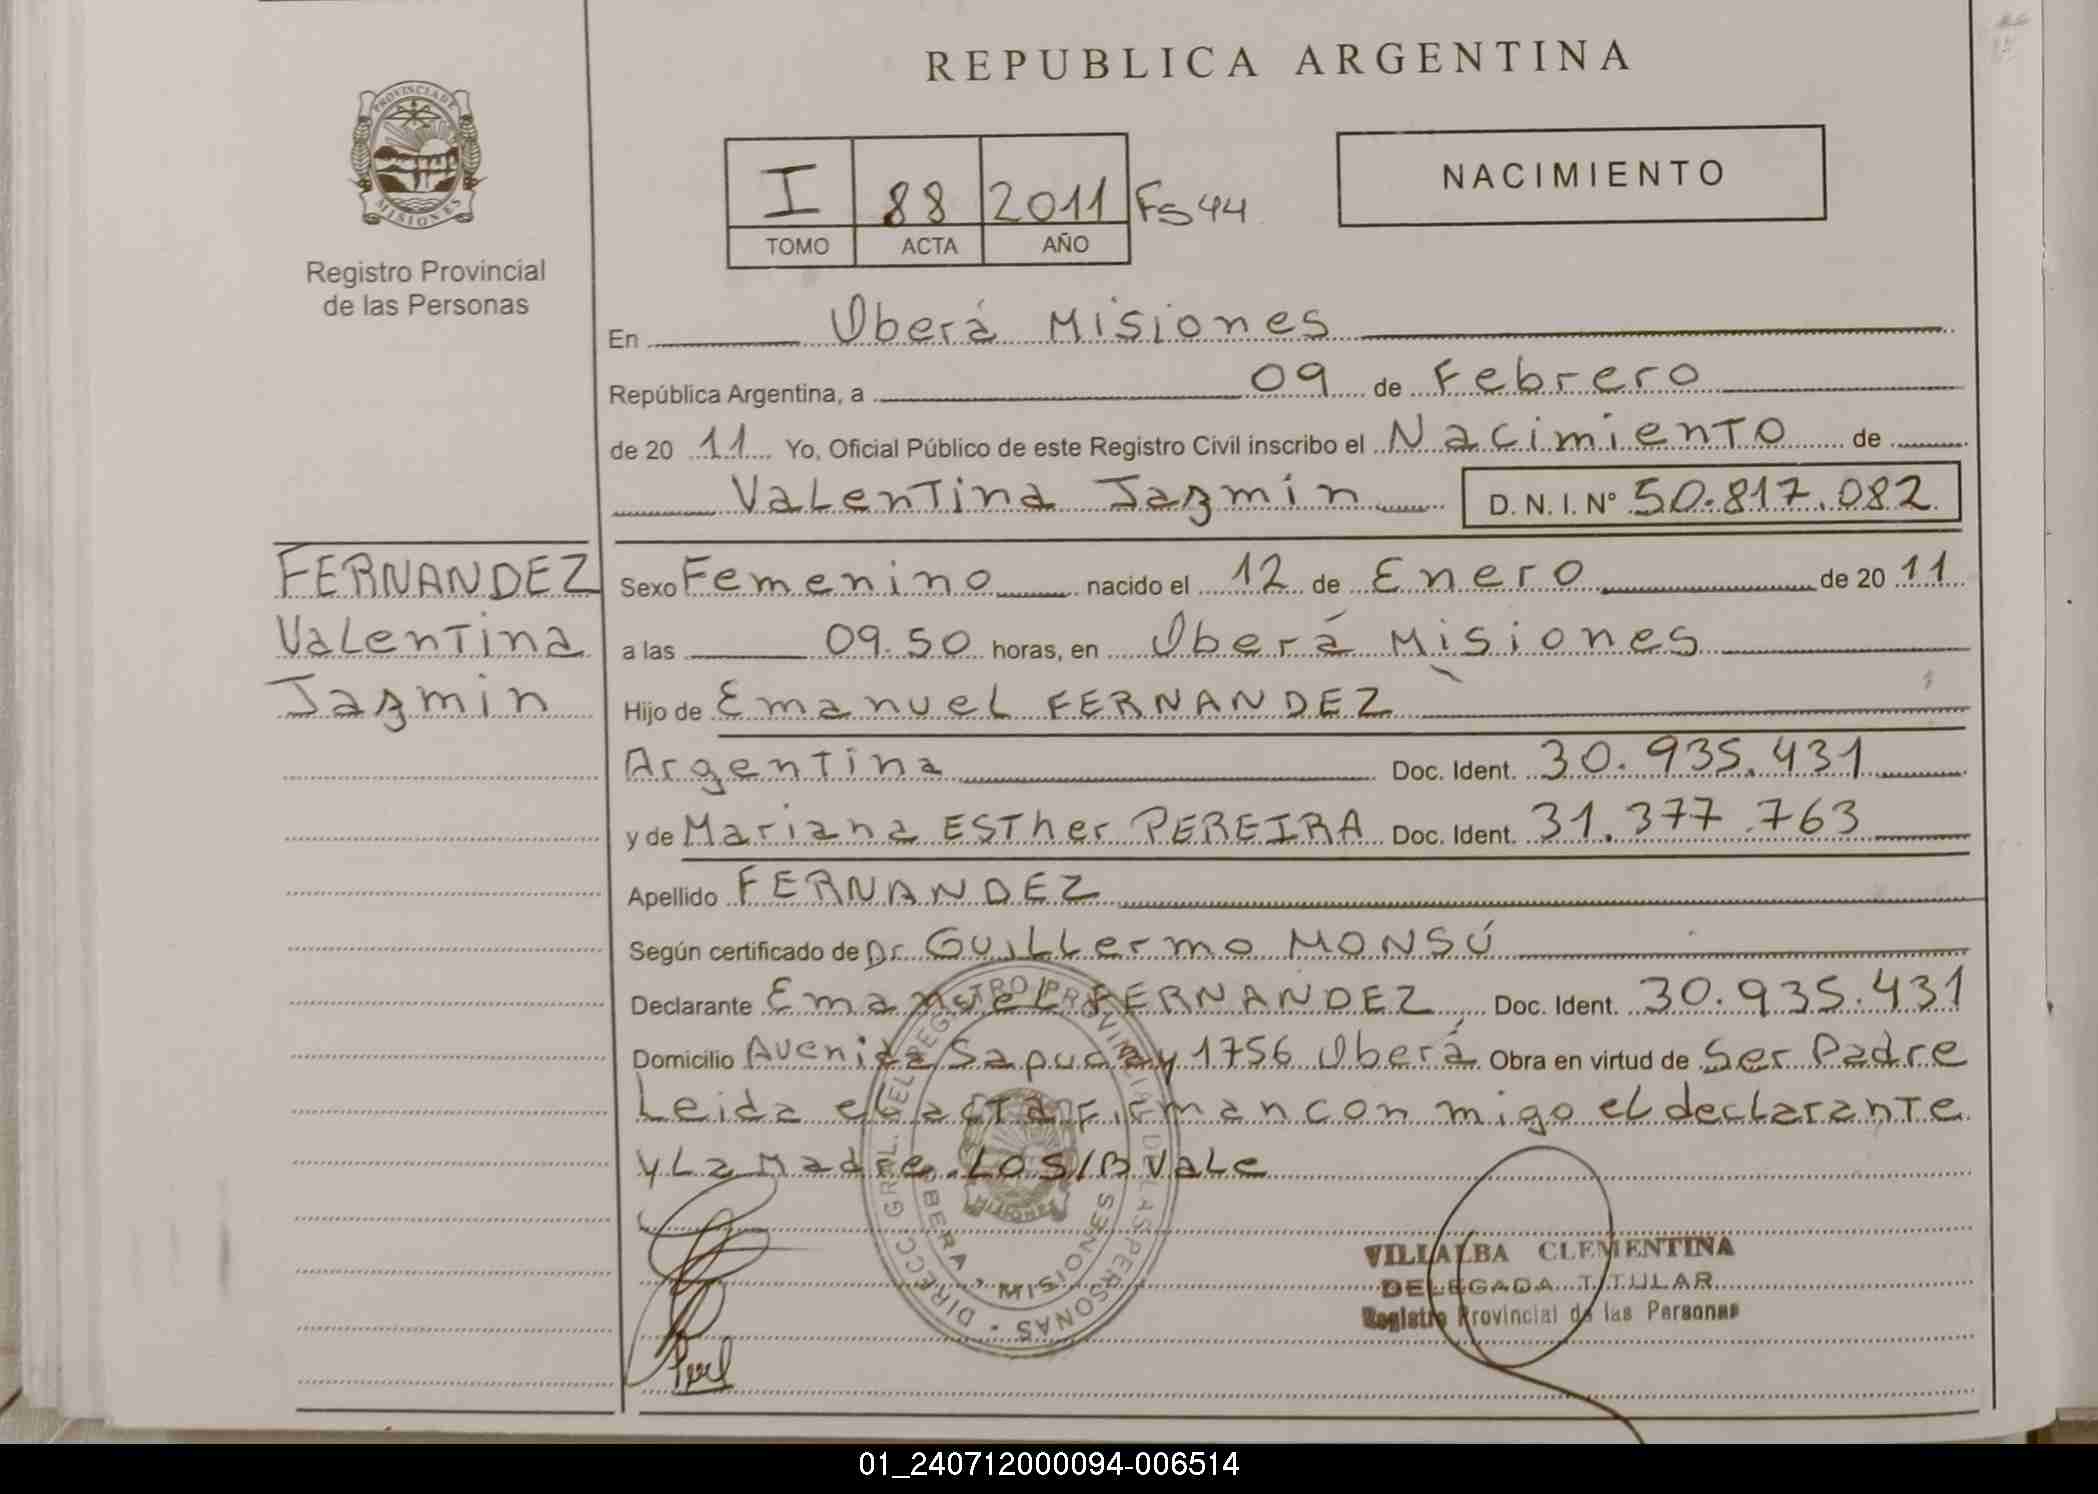 REPUBLICA ARGENTINA
PROVINCIA DE
MISIONES
Registro Provincial
de las Personas
I 88 2011 Fs 44
TOMO ACTA AÑO
NACIMIENTO
En Oberá Misiones
República Argentina, a 09 de Febrero
de 20 11 Yo, Oficial Público de este Registro Civil inscribo el Nacimiento de
Valentina Jazmin D. N. I. N° 50.817.082
FERNANDEZ
Valentina
Jazmin
Sexo Femenino nacido el 12 de Enero de 20 11
a las 09.50 horas, en Oberá Misiones
Hijo de Emanuel FERNANDEZ
Argentina Doc. Ident. 30.935.431
y de Mariana ESTher PEREIRA Doc. Ident. 31.377.763
Apellido FERNANDEZ
Según certificado de Dr. Guillermo MONSÚ
Declarante Emanuel FERNANDEZ Doc. Ident. 30.935.431
Domicilio Avenida Sapucay 1756 Oberá Obra en virtud de Ser Padre
Leida el acta Firman con migo el declarante
y La Madre. LO S/B Vale
DIRECC. GRAL. DEL REGISTRO PROVINCIAL DE LAS PERSONAS
OBERA - MISIONES
MISIONES
VILLALBA CLEMENTINA
DELEGADA TITULAR
Registro Provincial de las Personas
01_240712000094-006514